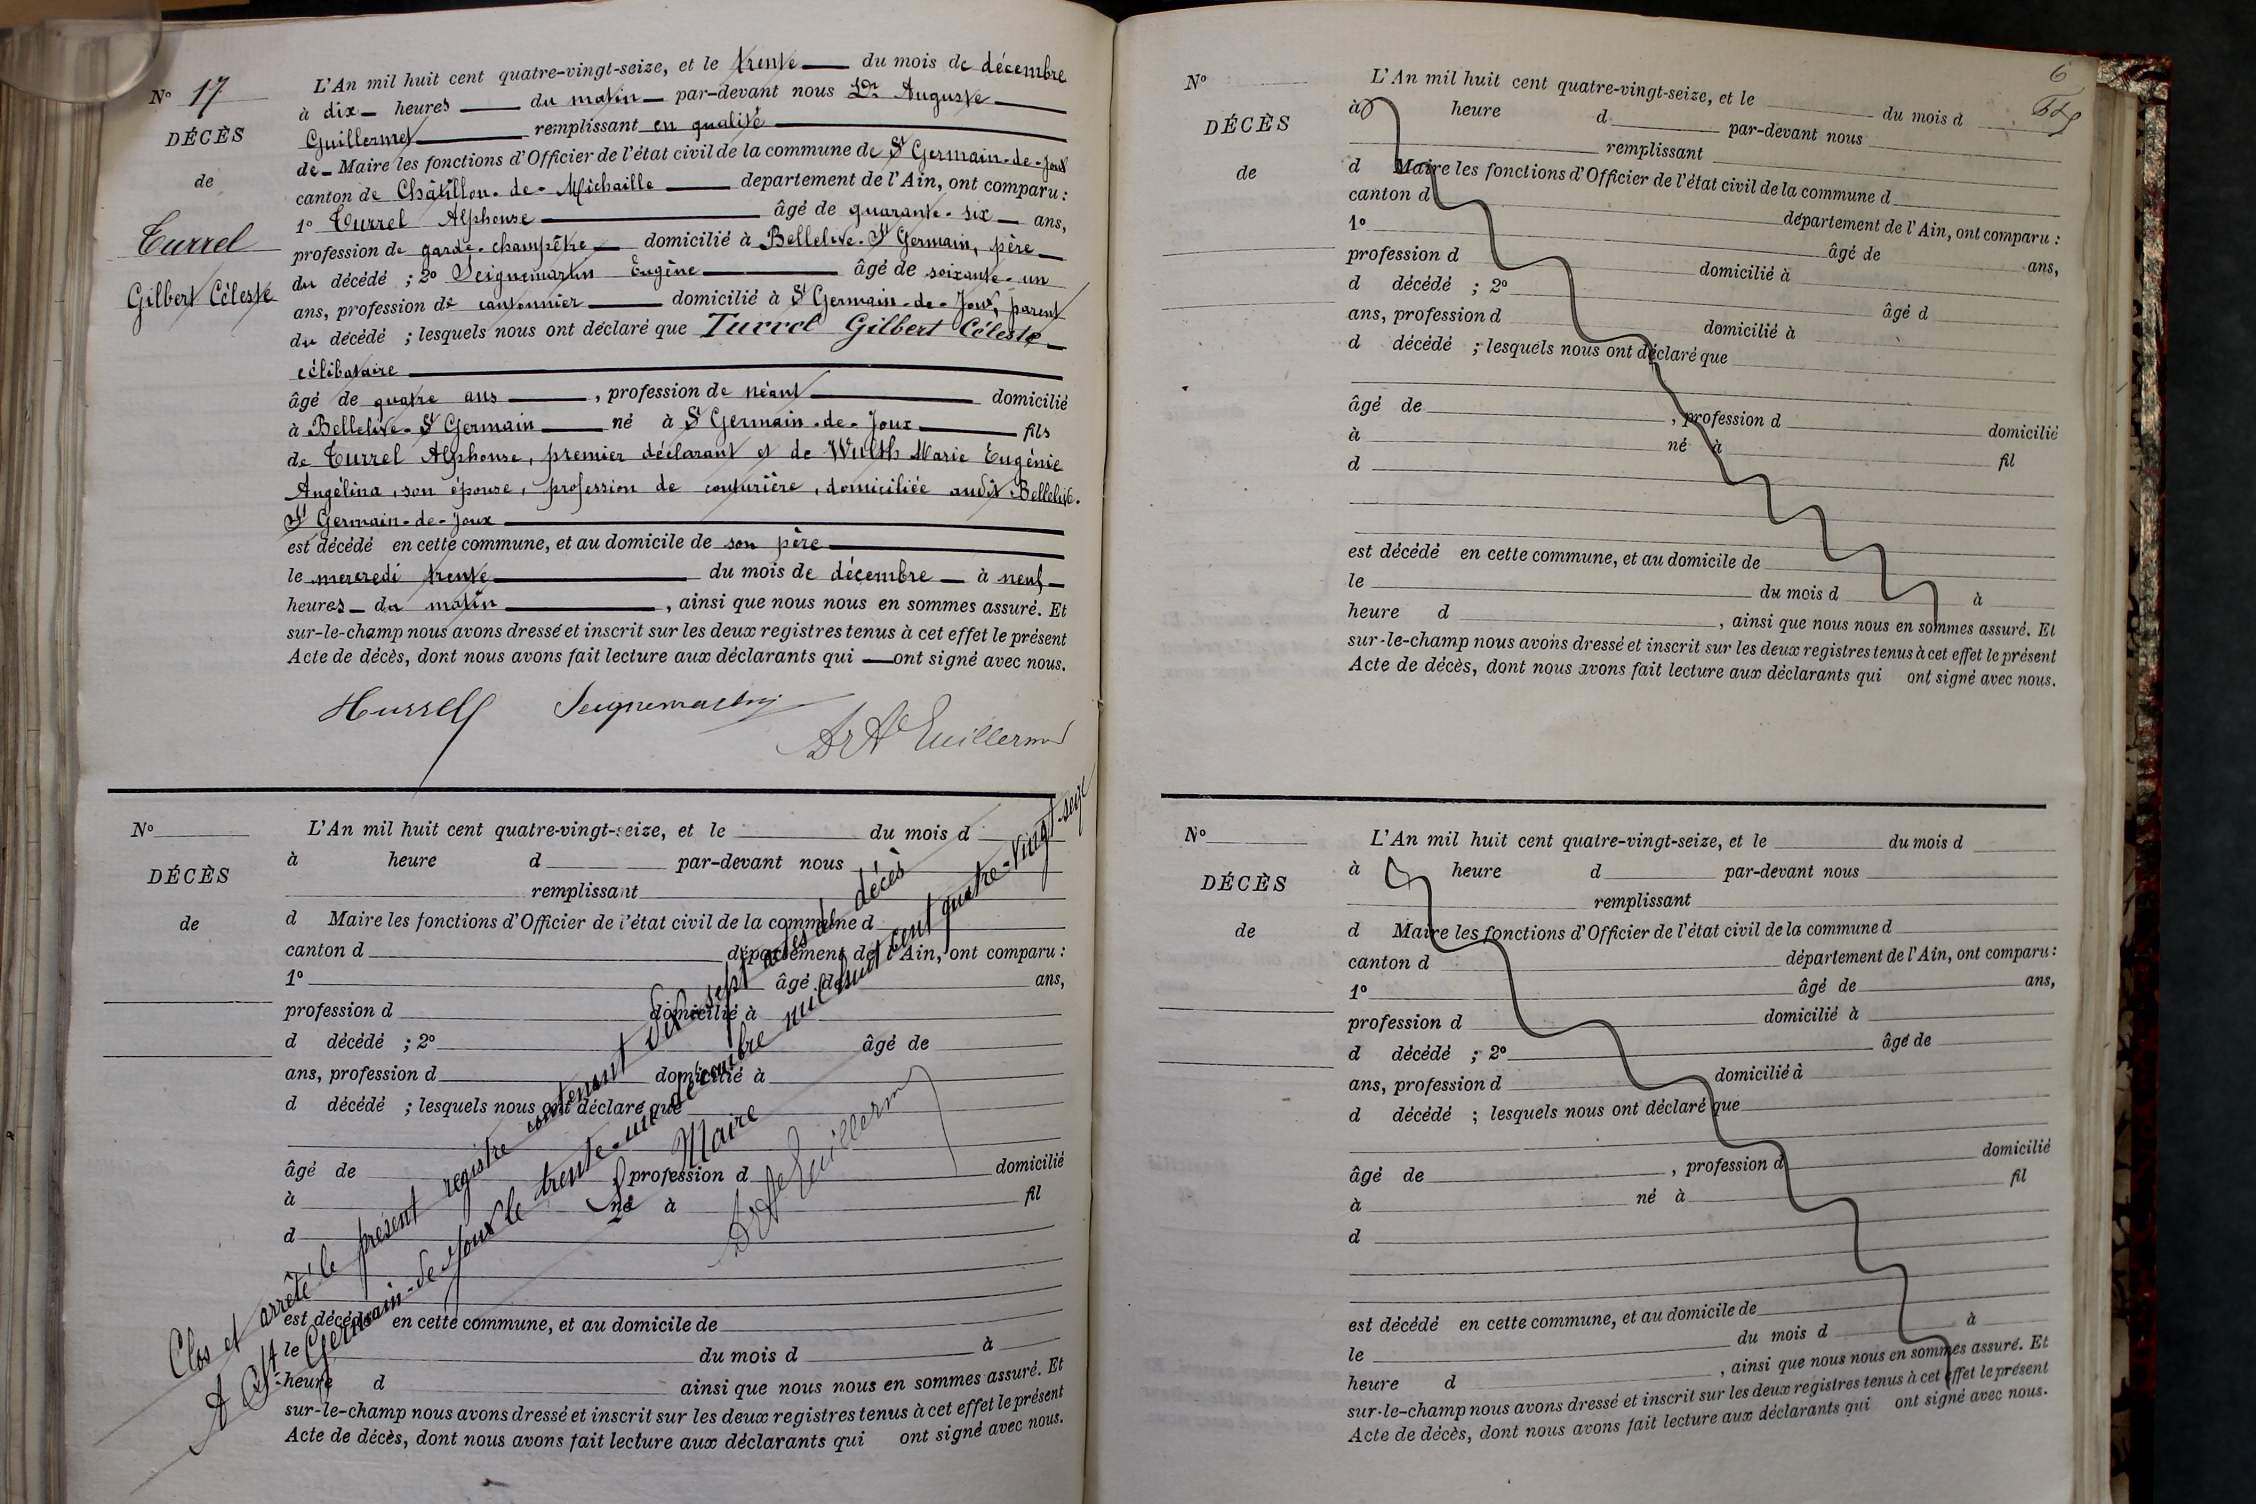 N° 17
DÉCÈS
de
Turrel
Gilbert Céleste
L'An mil huit cent quatre-vingt-seize, et le trente du mois de décembre
à dix heures du matin par-devant nous Dr Auguste
Guillermet remplissant en qualité
de Maire les fonctions d'Officier de l'état civil de la commune de St Germain-de-Joux
canton de Châtillon-de-Michaille département de l'Ain, ont comparu :
1° Turrel Alphonse âgé de quarante-six ans,
profession de garde-champêtre domicilié à Bellelive-St Germain, père
du décédé ; 2° Seignemartin Eugène âgé de soixante-un
ans, profession de cantonnier domicilié à St Germain-de-Joux, parent
du décédé ; lesquels nous ont déclaré que Turrel Gilbert Céleste
célibataire
âgé de quatre ans , profession de néant domicilié
à Bellelive-St Germain né à St Germain-de-Joux fils
de Turrel Alphonse, premier déclarant et de Wulth Marie Eugénie
Angélina, son épouse, profession de couturière, domiciliée audit Bellelive-
St Germain-de-Joux
est décédé en cette commune, et au domicile de son père
le mercredi trente du mois de décembre à neuf
heures du matin , ainsi que nous nous en sommes assuré. Et
sur-le-champ nous avons dressé et inscrit sur les deux registres tenus à cet effet le présent
Acte de décès, dont nous avons fait lecture aux déclarants qui ont signé avec nous.
Seignemartin
Dr Ate Guillermet
N°
DÉCÈS
de
L'An mil huit cent quatre-vingt-seize, et le du mois d
à heure d par-devant nous
remplissant
d Maire les fonctions d'Officier de l'état civil de la commune d
canton d département de l'Ain, ont comparu :
1° âgé de ans,
profession d domicilié à
d décédé ; 2° âgé de
ans, profession d domicilié à
d décédé ; lesquels nous ont déclaré que
âgé de profession d domicilié
à né à fil
d
est décédé en cette commune, et au domicile de
le du mois d à
heure d ainsi que nous nous en sommes assuré. Et
sur-le-champ nous avons dressé et inscrit sur les deux registres tenus à cet effet le présent
Acte de décès, dont nous avons fait lecture aux déclarants qui ont signé avec nous.
Clos et arrêté le présent registre contenant dix-sept actes de décès
A St Germain-de-Joux le trente-un décembre mil huit cent quatre-vingt-seize
Le Maire
Dr Ate Guillermet
6
N°
DÉCÈS
de
L'An mil huit cent quatre-vingt-seize, et le du mois d
à heure d par-devant nous
remplissant
d Maire les fonctions d'Officier de l'état civil de la commune d
canton d département de l'Ain, ont comparu :
1° âgé de ans,
profession d domicilié à
d décédé ; 2° âgé d
ans, profession d domicilié à
d décédé ; lesquels nous ont déclaré que
âgé de , profession d domicilié
à né à fil
d
est décédé en cette commune, et au domicile de
le du mois d à
heure d , ainsi que nous nous en sommes assuré. Et
sur-le-champ nous avons dressé et inscrit sur les deux registres tenus à cet effet le présent
Acte de décès, dont nous avons fait lecture aux déclarants qui ont signé avec nous.
N°
DÉCÈS
de
L'An mil huit cent quatre-vingt-seize, et le du mois d
à heure d par-devant nous
remplissant
d Maire les fonctions d'Officier de l'état civil de la commune d
canton d département de l'Ain, ont comparu :
1° âgé de ans,
profession d domicilié à
d décédé ; 2° âgé de
ans, profession d domicilié à
d décédé ; lesquels nous ont déclaré que
âgé de , profession d domicilié
à né à fil
d
est décédé en cette commune, et au domicile de
le du mois d à
heure d , ainsi que nous nous en sommes assuré. Et
sur-le-champ nous avons dressé et inscrit sur les deux registres tenus à cet effet le présent
Acte de décès, dont nous avons fait lecture aux déclarants qui ont signé avec nous.